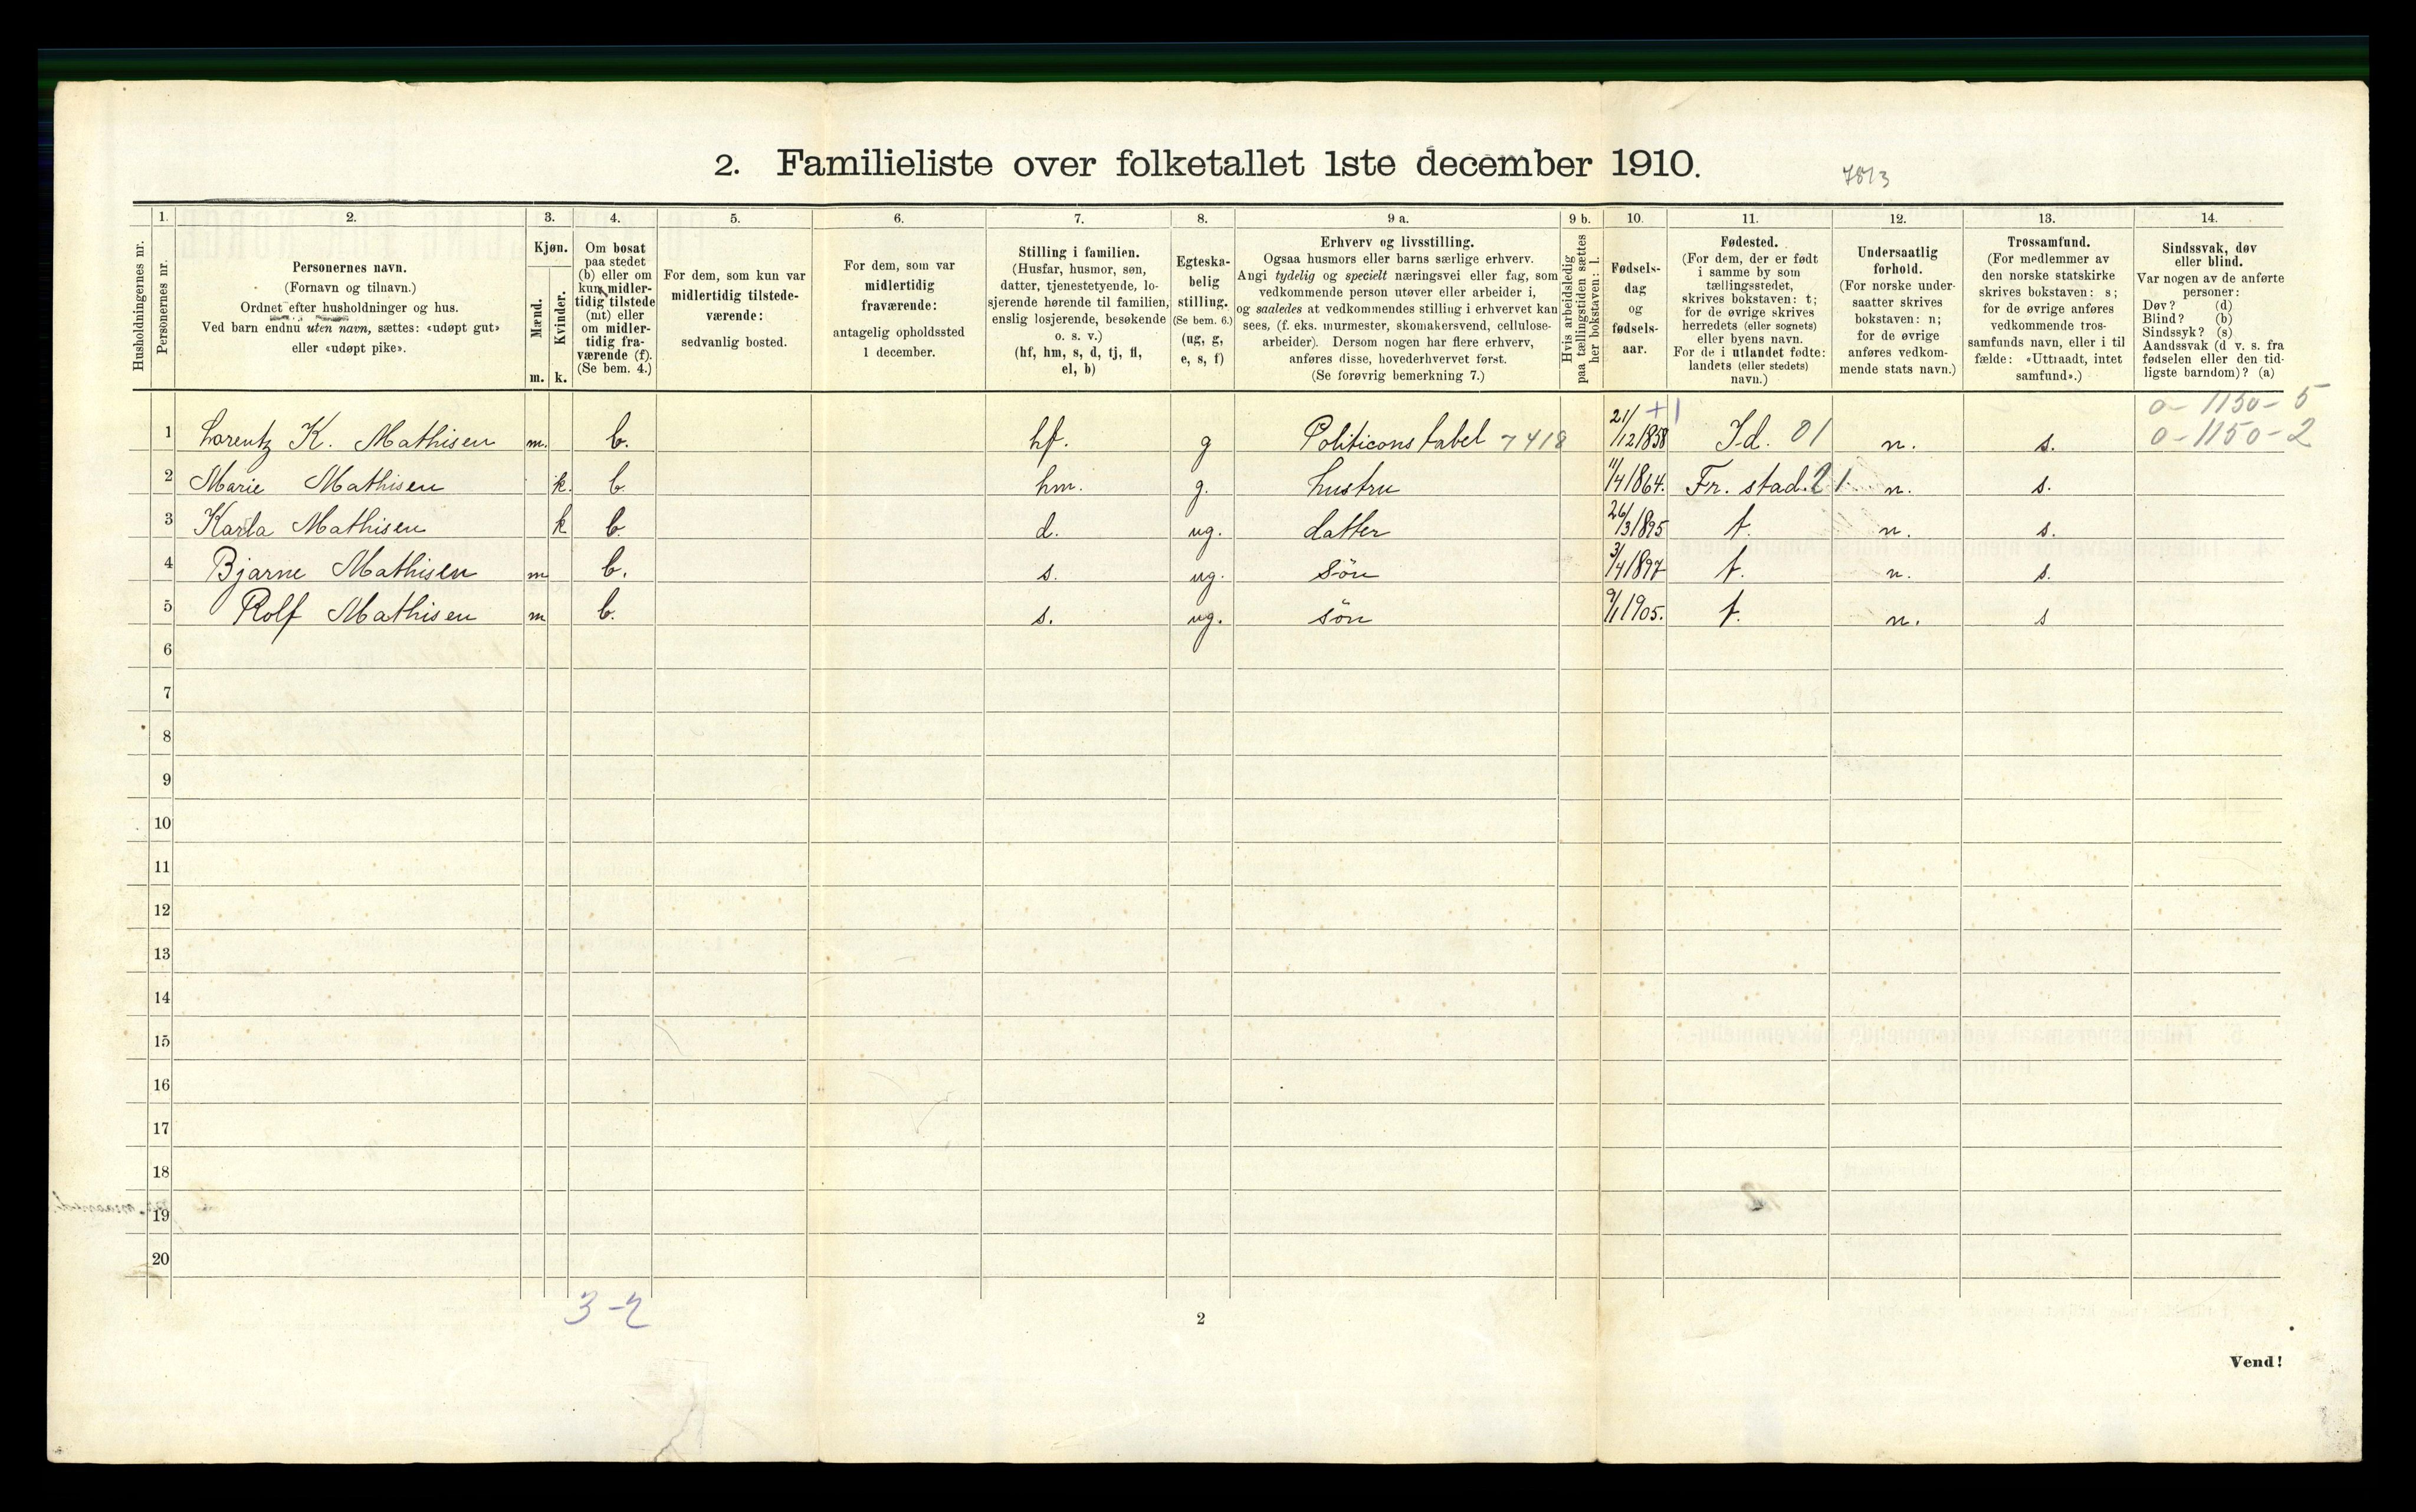 2. Familieliste over folketallet 1ste december 1910.
7813
1. 2. 3. 4. 5. 6. 7. 8. 9 a. 9 b. 10. 11. 12. 13. 14.
Husholdningernes nr.
Personernes nr.
Personernes navn.
(Fornavn og tilnavn.)
Ordnet efter husholdninger og hus.
Ved barn endnu uten navn, sættes: «udøpt gut»
eller «udøpt pike».
Kjøn.
Mænd.
Kvinder.
m. k.
Om bosat
paa stedet
(b) eller om
kun midler-
tidig tilstede
(mt) eller
om midler-
tidig fra-
værende (f).
(Se bem. 4.)
For dem, som kun var
midlertidig tilstede-
værende:
sedvanlig bosted.
For dem, som var
midlertidig
fraværende:
antagelig opholdssted
1 december.
Stilling i familien.
(Husfar, husmor, søn,
datter, tjenestetyende, lo-
sjerende hørende til familien,
enslig losjerende, besøkende
o. s. v.)
(hf, hm, s, d, tj, fl,
el, b)
Egteska-
belig
stilling.
(Se bem. 6.)
(ug, g,
e, s, f)
Erhverv og livsstilling.
Ogsaa husmors eller barns særlige erhverv.
Angi tydelig og specielt næringsvei eller fag, som
vedkommende person utøver eller arbeider i,
og saaledes at vedkommendes stilling i erhvervet kan
sees, (f. eks. murmester, skomakersvend, cellulose-
arbeider). Dersom nogen har flere erhverv,
anføres disse, hovederhvervet først.
(Se forøvrig bemerkning 7.)
Hvis arbeidsledig
paa tællingstiden sættes
her bokstaven: l.
Fødsels-
dag
og
fødsels-
aar.
Fødested.
(For dem, der er født
i samme by som
tællingsstedet,
skrives bokstaven: t;
for de øvrige skrives
herredets (eller sognets)
eller byens navn.
For de i utlandet fødte:
landets (eller stedets)
navn.)
Undersaatlig
forhold.
(For norske under-
saatter skrives
bokstaven: n;
for de øvrige
anføres vedkom-
mende stats navn.)
Trossamfund.
(For medlemmer av
den norske statskirke
skrives bokstaven: s;
for de øvrige anføres
vedkommende tros-
samfunds navn, eller i til
fælde: «Uttraadt, intet
samfund».)
Sindssvak, døv
eller blind.
Var nogen av de anførte
personer:
Døv? (d)
Blind? (b)
Sindssyk? (s)
Aandssvak (d v. s. fra
fødselen eller den tid-
ligste barndom)? (a)
0-1150-5
1 Lorentz K. Mathisen m. b. hf. g Politiconstabel 7418 21/12 1858 +1 Id. 01 n. s. 0-1150-2
2 Marie Mathisen k. b. hm. g. hustru 11/4 1864. Fr. stad. 21 n. s.
3 Karla Mathisen k b. d. ug. datter 26/3 1895 t. n. s.
4 Bjarne Mathisen m b. s. ug. søn 3/4 1897 t. n. s.
5 Rolf Mathisen m b. s. ug. søn 9/1 1905. t. n. s
6
7
8
9
10
11
12
13
14
15
16
17
18
19
20
3-2
2
Vend!